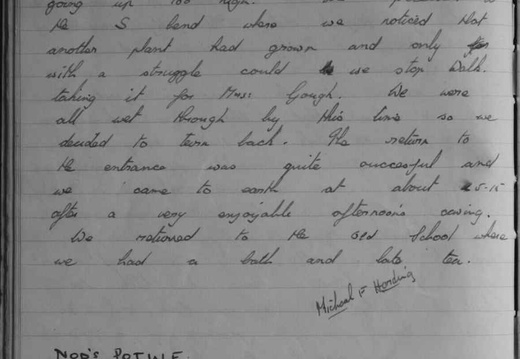 going up too high. We
the S bend where we noticed that
another plant had grown and only
with a struggle could we stop Walk.
taking it for Mrs. Gough. We were
all wet through by this time so we
decided to turn back. The return to
the entrance was quite successful and
we came to earth at about 5-15
after a very enjoyable afternoon's caving.
We returned to the Old School where
we had a bath and late tea.
Michael F Harding
NOD'S POTWE